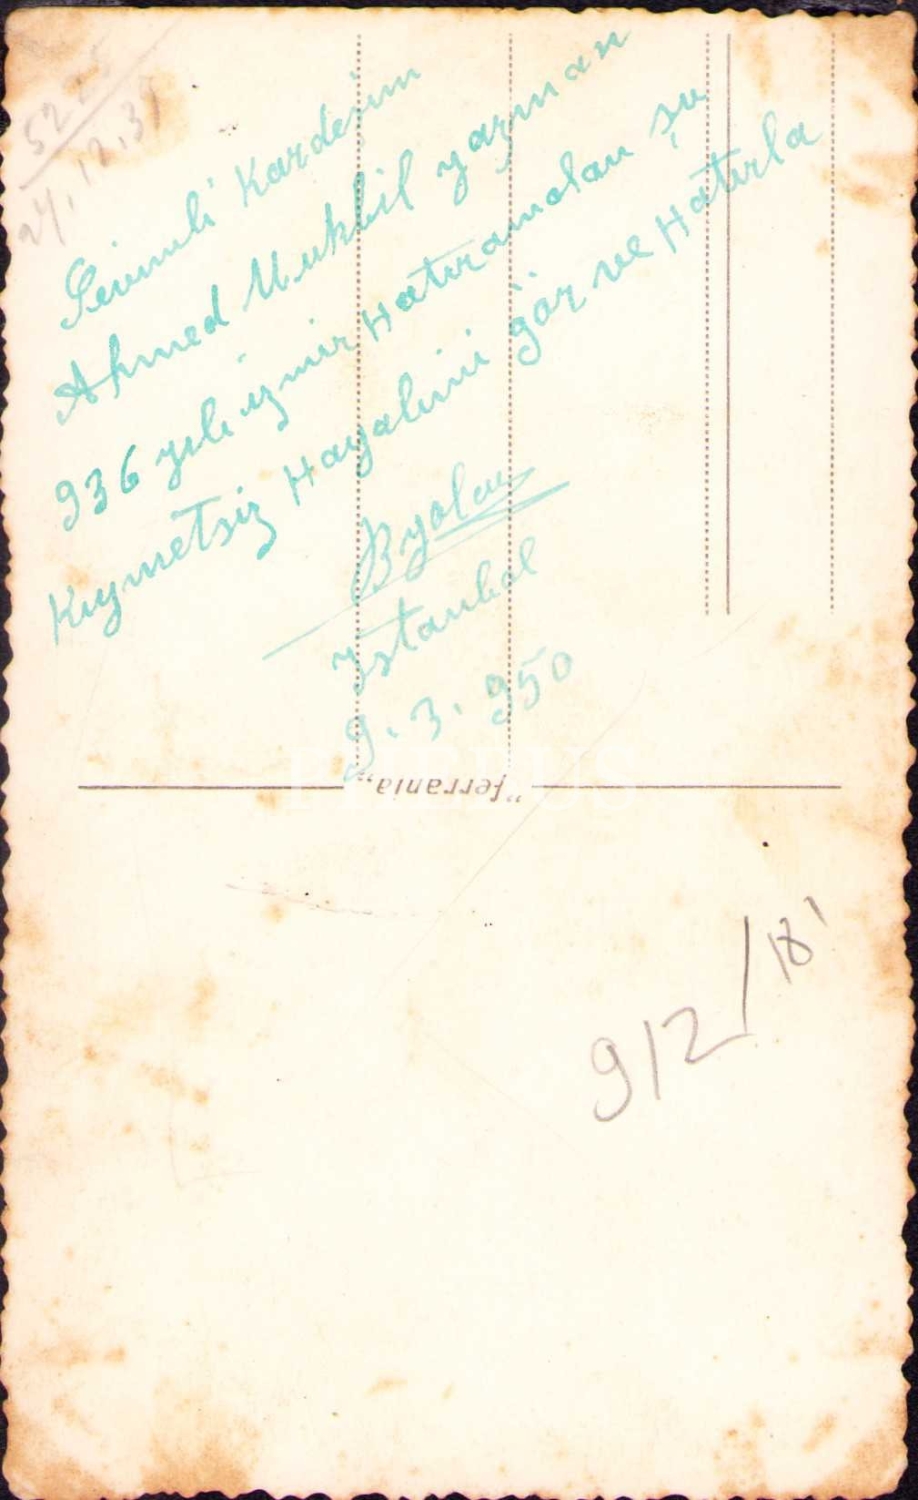 24.12.37
Sevimli Kardeşim
Ahmed Mukbil yazman
936 yılı izmir Hatıramolan şu
Kıymetsiz Hayalimi gör ve Hatırla
Byolaç
İstanbul
9.3.950
"ferrania"
912/18